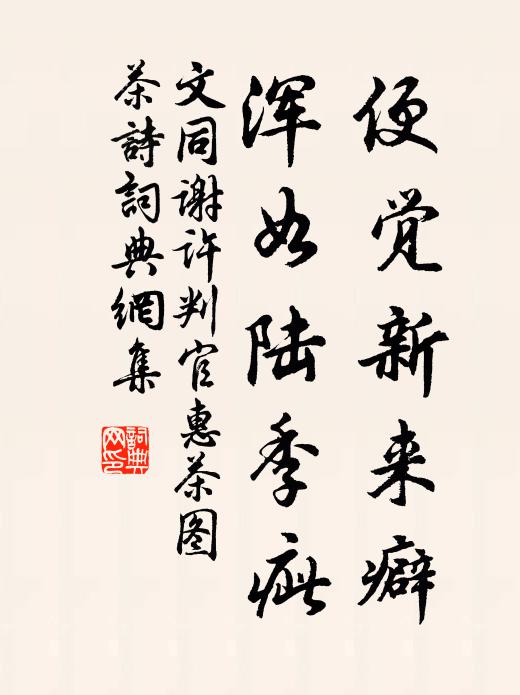 便觉新来癖
浑如陆季疵
文同谢许判官惠茶图
茶詩詞典網集
詞典
网印